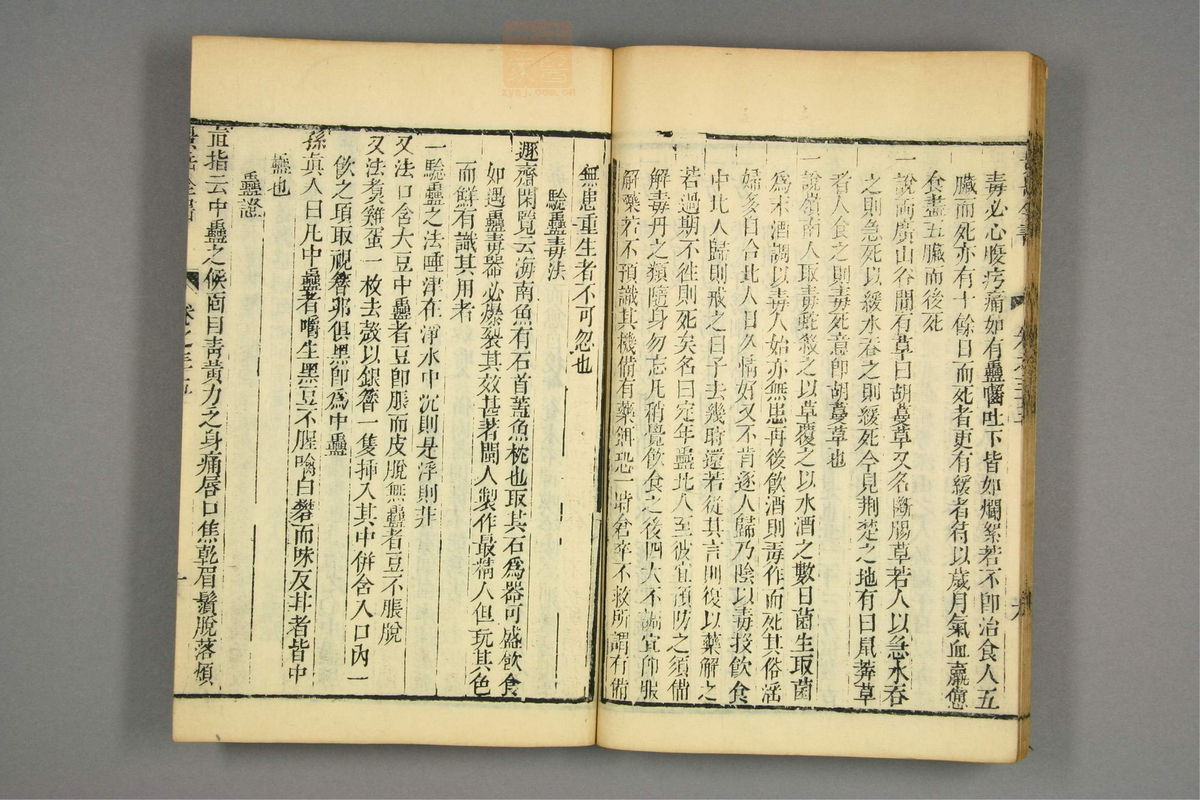 毒必心腹疞痛如有蟲嚙吐下皆如爛絮若不即治食人五
臟而死亦有十餘日而死者更有緩者待以歲月氣血羸憊
食盡五臟而後死
一說兩廣山谷間有草曰胡蔓草又名斷腸草若人以急水吞
之則急死以緩水吞之則緩死今見荆楚之地有曰鼠莽草
者人食之則毒死意即胡蔓草也
一說嶺南人取毒蛇殺之以草覆之以水酒之數日菌生取菌
為末酒調以毒人始亦無患再後飲酒則毒作而死其俗淫
婦多自合北人日久情好又不肯逐人歸乃陰以毒投飲食
中北人歸則戒之曰子去幾時還若從其言則復以藥解之
若過期不徃則死矣名曰定年蠱北人至彼宜預防之須備
解毒丹之類隨身勿忘凡稍覺飲食之後四大不調宜仰服
解藥若不預識其機備有藥餌恐一時倉卒不救所謂有備
無患重生者不可忽也
驗蠱毒法
遯齋閑覽云海南魚有石首蓋魚枕也取其石為器可盛飲食
如遇蠱毒器必爆裂其效甚著閩人製作最精人但玩其色
而鮮有識其用者
一驗蠱之法唾津在淨水中沉則是浮則非
又法口含大豆中蠱者豆即脹而皮脫無蠱者豆不脹脫
又法煑雞蛋一枚去殼以銀簪一隻挿入其中併含入口內一
飲之頃取視簪卵俱黑即為中蠱
孫真人曰凡中蠱者嚼生黑豆不腥噙白礬而味反甘者皆中
蠱也
蠱證
直指云中蠱之候面目青黃力乏身痛唇口焦乾眉鬚脫落煩
卷之三十五